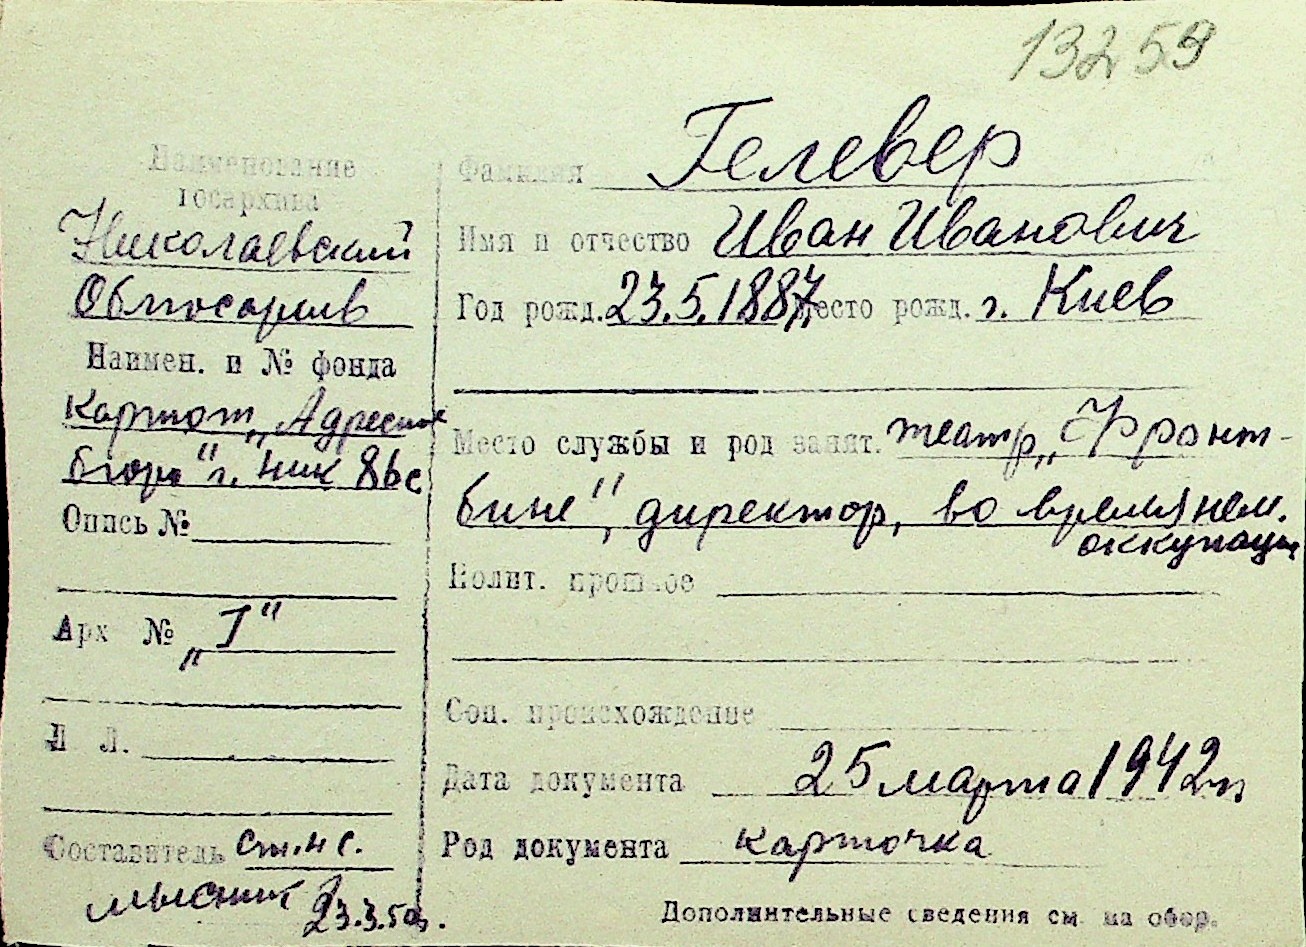 13259
Наименование
Госархива
Николаевский
Облгосархив
Наимен. и № фонда
Картот. „Адресное
бюро" г. Ник 86с
Опись №
Арх № „Г"
Л Л.
Составитель ст. н с.
23.3.50г.
Фамилия Гелевер
Имя и отчество Иван Иванович
Год рожд. 23.5.1887 Место рожд. г. Киев
Место службы и род занят. театр „Фронт-
бине", директор, во время нем.
оккупации
Полит. прошлое
Соц. происхождение
Дата документа 25 марта 1942 г
Род документа карточка
Дополнительные сведения см. на обор.